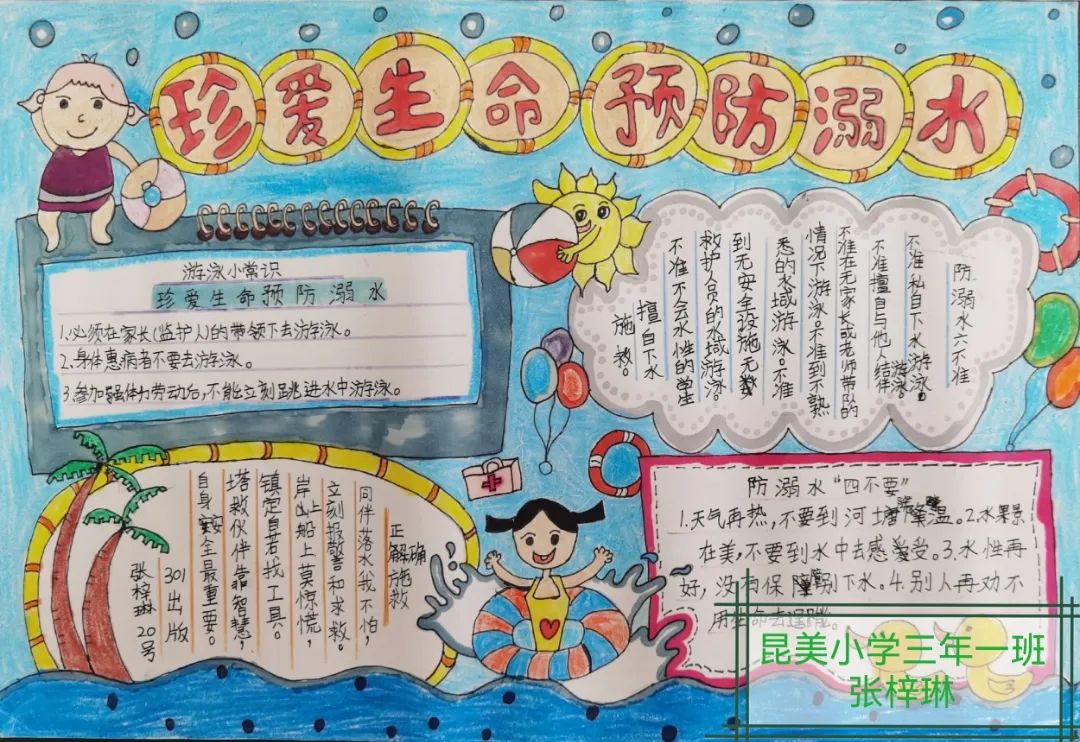 珍爱生命 预防溺水
游泳小常识
珍爱生命预防溺水
1.必须在家长(监护人)的带领下去游泳。
2.身体患病者不要去游泳。
3.参加强体力劳动后,不能立刻跳进水中游泳。
防溺水六不准
不准私自下水游泳。
不准擅自与他人结伴游泳。
不准在无家长或老师带队的
情况下游泳。不准到不熟
悉的水域游泳。不准
到无安全设施无
救护人员的水域游泳。
不准不会水性的学生
擅自下水
施救。
正确
解施救
同伴落水我不怕,
立刻报警和求救。
岸上船上莫惊慌,
镇定自若找工具。
塔救伙伴靠智慧,
自身安全最重要。
301出版
张梓琳20号
防溺水“四不要”
1.天气再热,不要到河塘降温。2.水景
在美,不要到水中去感受。3.水性再
好,没有保障别下水。4.别人再劝不
用生命去逞能。
昆美小学三年一班
张梓琳